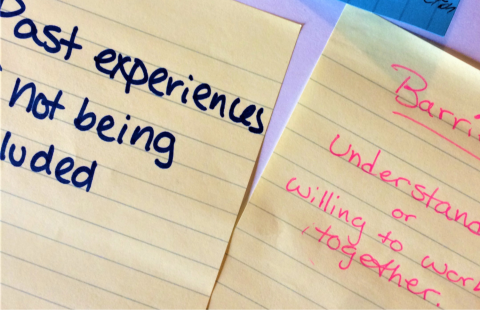 Past experiences
not being
luded
Barri
Understand
or
willing to work
together.